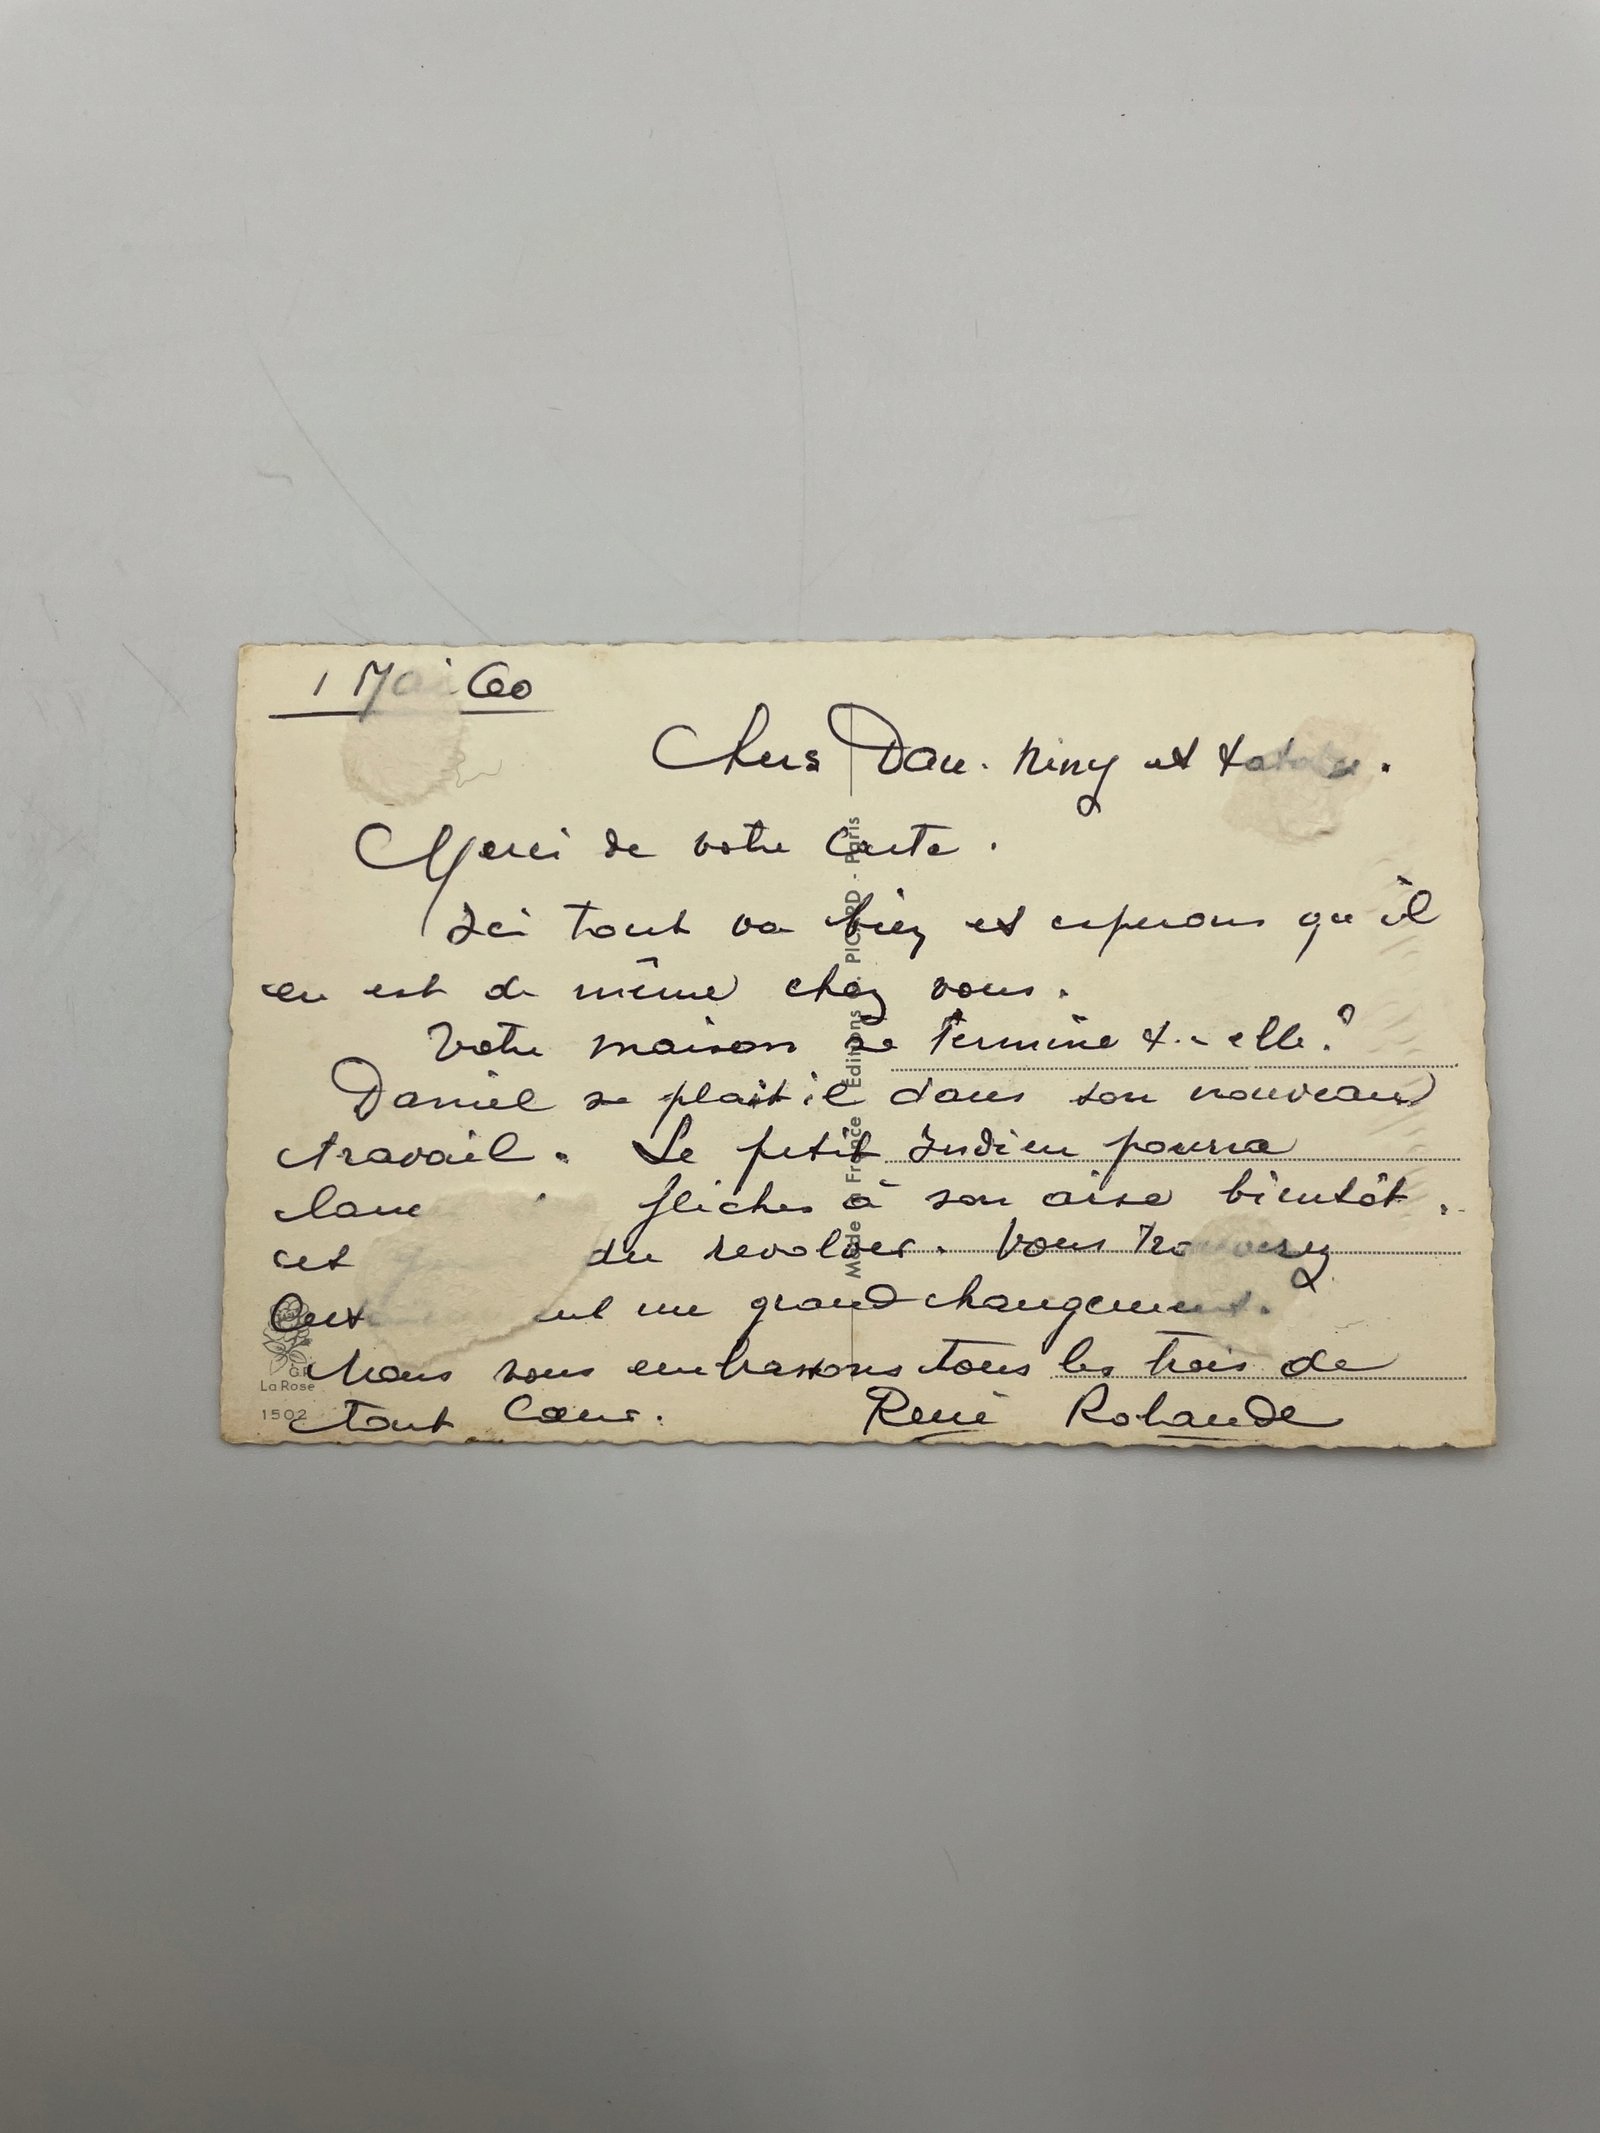 1 Mai 60
Chers Dan. Niny et
Merci de votre Carte.
Ici tout va bien et esperons qu'il
en est de même chez vous.
Votre maison se termine t-elle?
Daniel se plait il dans son nouveau
travail. Le petit Indien pourra
flèches à son aise bientôt.
et du revolver. Vous trouverez
un grand changement.
Nous vous embrassons tous les trois de
tout Cœur. René Rolande
Made in France Editions . PICARD - Paris
G.P.
La Rose
1502